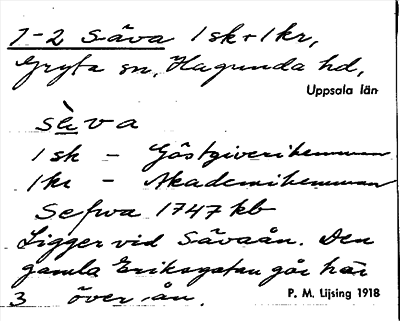 1-2 Säva 1 sk + 1 kr,
Gryta sn, Hagunda hd,
Uppsala län
sè̀va
1 sk - Gästgiverihemman
1kr - Akademihemman
Sefwa 1747 kb
Ligger vid Sävaån. Den
gamla Eriksgatan går här
3 över ån.
P. M. Lijsing 1918